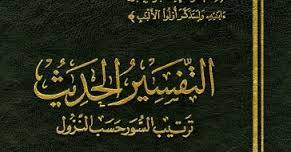 وليتذكر أولوا الألبب ﴾
التفسير الحديث
ترتيب السور حسب النزول